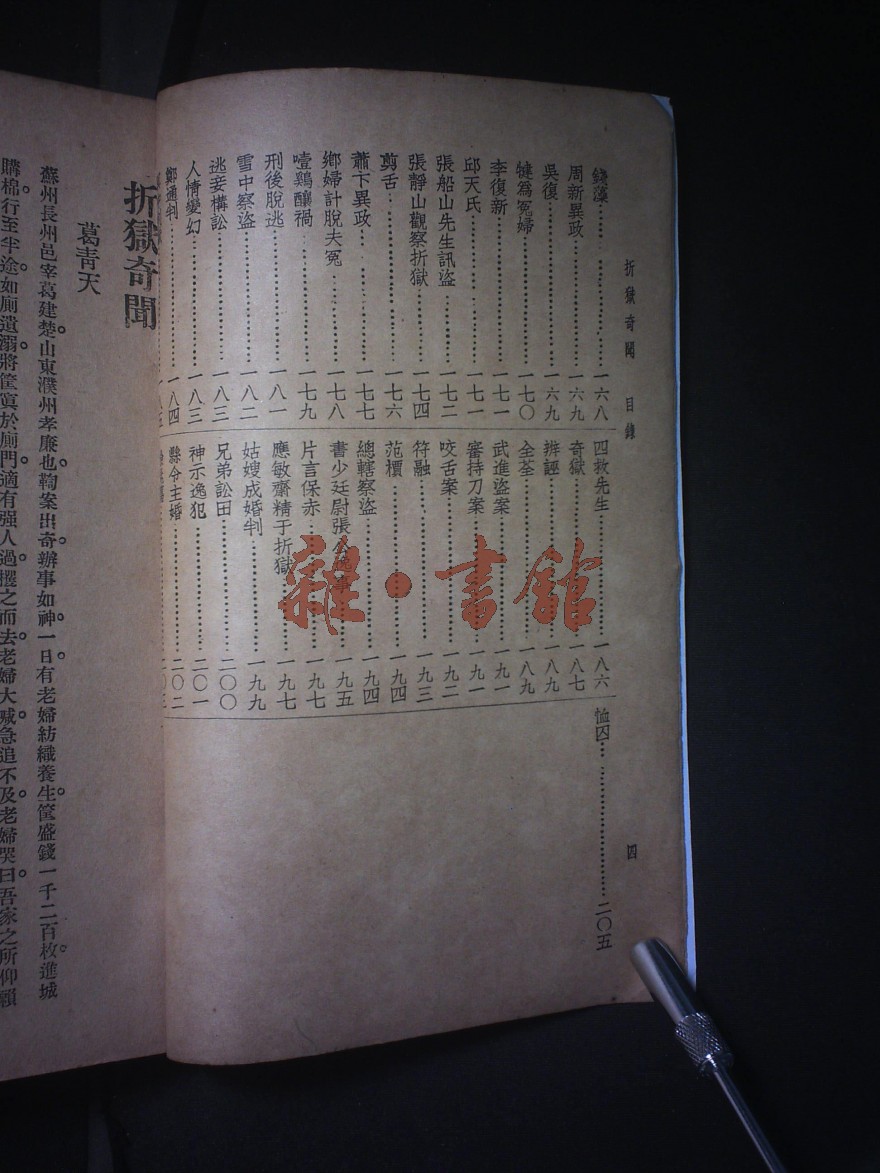 折獄奇聞 目錄 四
錢藻……一六八
周新異政……一六九
吳復……一六九
犍為冤婦……一七〇
李復新……一七一
邱天民……一七一
張船山先生訊盜……一七二
張靜山觀察折獄……一七四
剪舌……一七六
蕭下異政……一七七
鄉婦計脫夫冤……一七八
噎鷄釀禍……一七九
刑後脫逃……一八一
雪中察盜……一八二
逃妾構訟……一八三
人情變幻……一八三
鄭通判……一八四
四救先生……一八六
奇獄……一八七
辨誣……一八九
全荃……一八九
武進盜案……一九一
審持刀案……一九一
咬舌案……一九二
符融……一九三
范檟……一九四
總轄察盜……一九四
書少廷尉張公逸事……一九五
片言保赤……一九七
應敏齋精于折獄……一九七
姑嫂成婚判……一九九
兄弟訟田……二〇〇
神示逸犯……二〇一
縣令主婚……二〇二
恤囚……二〇五
雜·書館
折獄奇聞
葛青天
蘇州長州邑宰葛建楚。山東濮州孝廉也。鞫案出奇。辦事如神。一日。有老婦紡織養生。筐盛錢一千二百枚。進城
購棉。行至半途。如厠遺溺。將筐寘於厠門。適有强人過。攫之而去。老婦大喊。急追不及。老婦哭曰。吾家之所仰賴